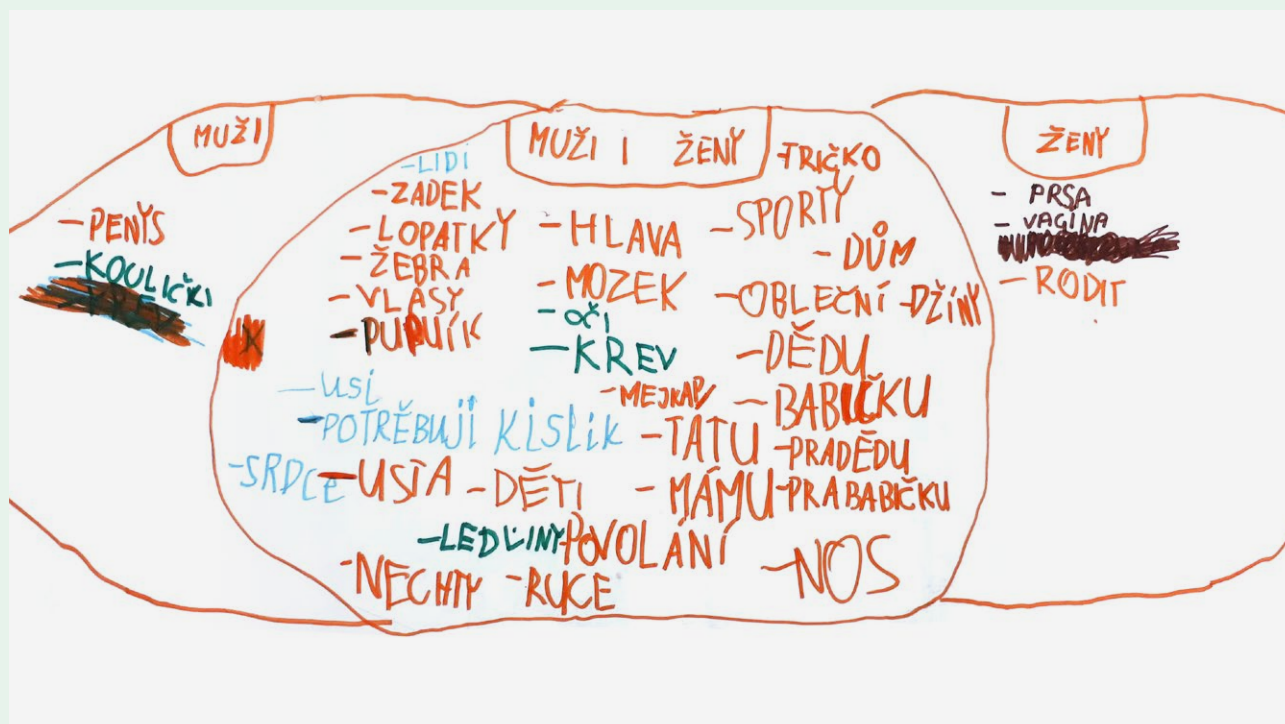 MUŽI
- PENYS
- KOULIČKI
MUŽI I ŽENY
- LIDI
- ZADEK
- LOPATKY
- ŽEBRA
- VLASY
- PUPUÍK
- USI
- POTRĚBUJÍ KISLIK
- SRDCE
- USTA
- DĚTI
- LEDLINY
- NECHTY
- RUCE
- HLAVA
- MOZEK
- OČI
- KREV
- MEJKAP
- TATU
- MÁMU
- POVOLÁNÍ
- TRIČKO
- SPORTY
- DŮM
- OBLEČNÍ
- DŽÍNY
- DĚDU
- BABIČKU
- PRADĚDU
- PRABABIČKU
- NOS
ŽENY
- PRSA
- VAGINA
- RODIT